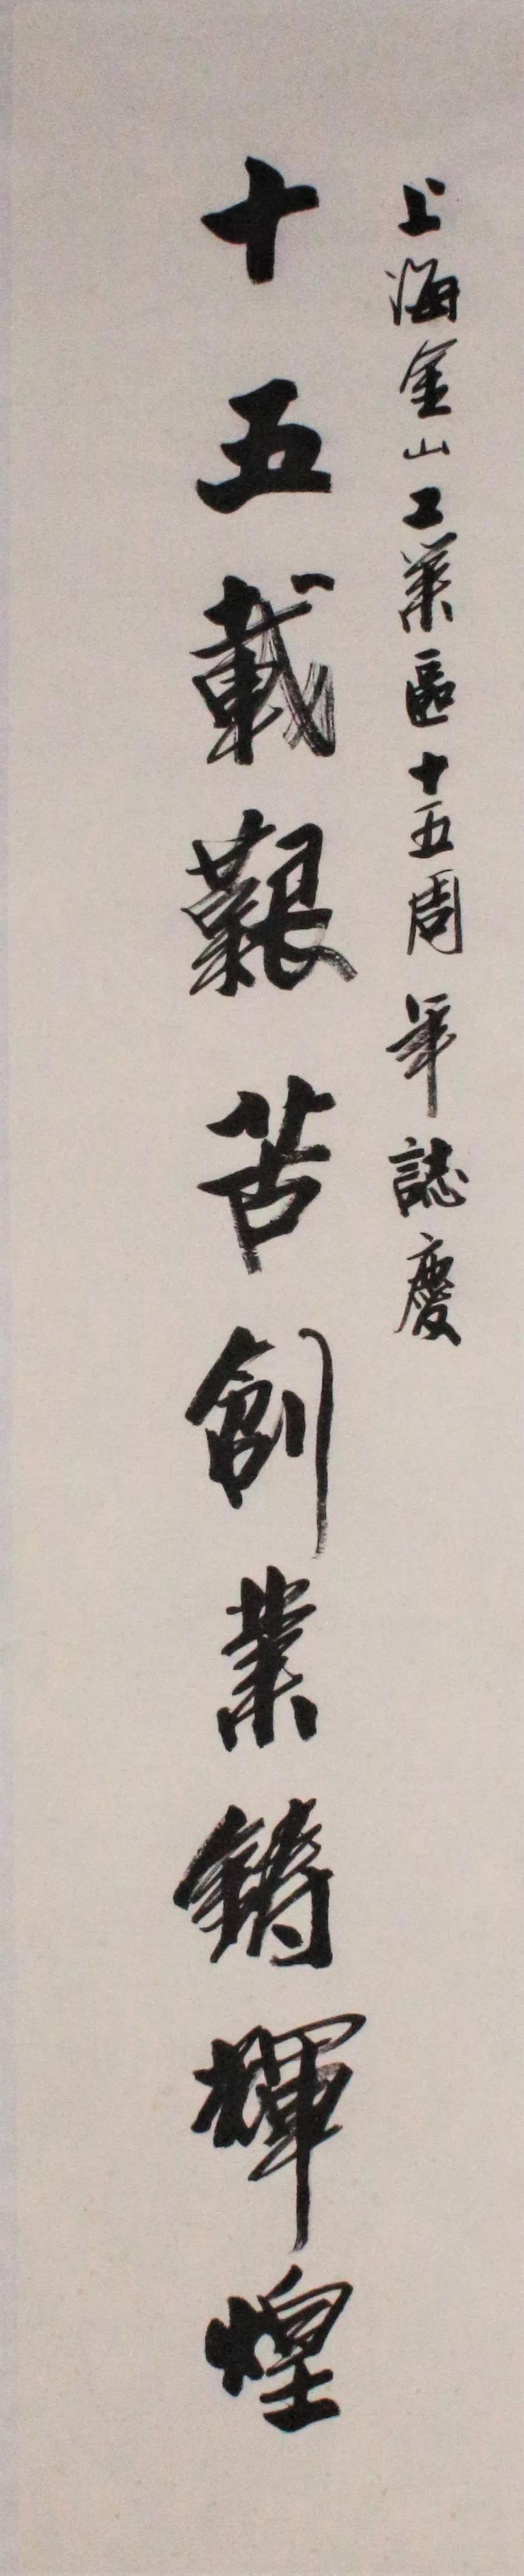 上海金山工業區十五周年誌慶
十五載艱苦創業鑄輝煌